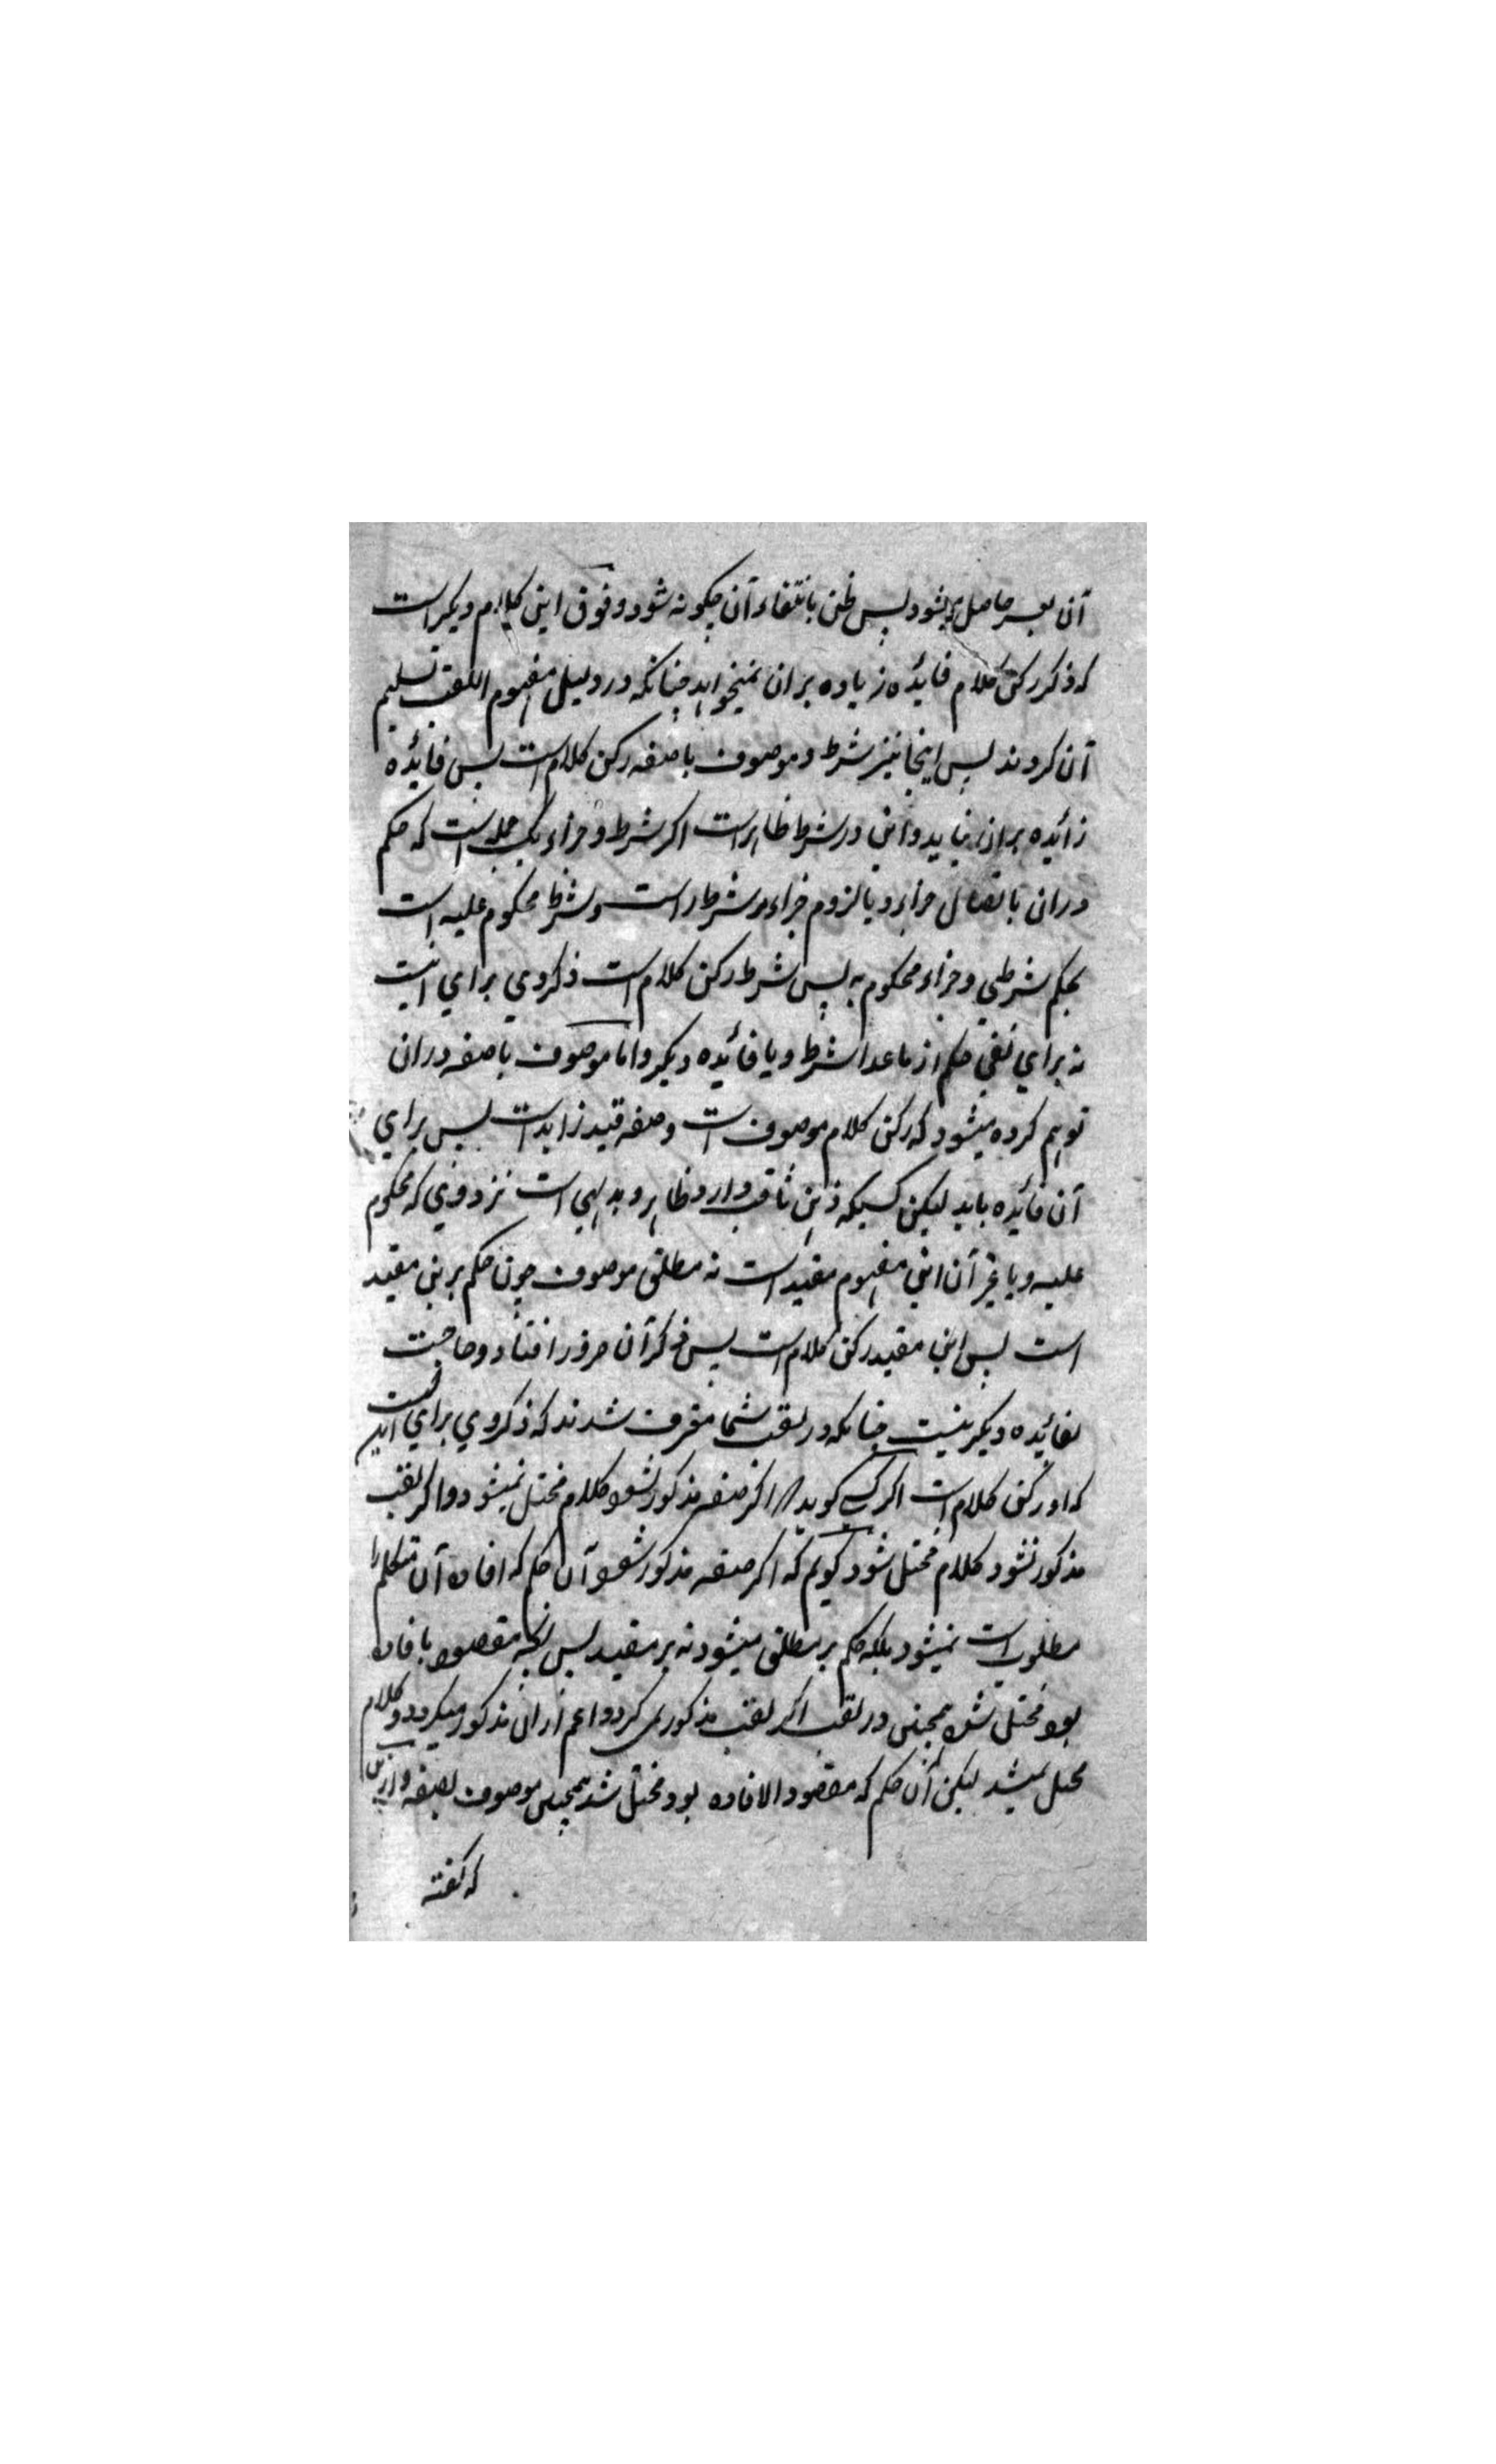 آن بعسر حاصل میشود پس ظن بانتفاء آن چگونه شود و فوق این کلام دیگر است
که ذکر رکن کلام فائده زیاده بران نمیخواهد چنانکه در دلیل مفهوم اللقب تسلیم
آن کردند پس اینجا نیز شرط و موصوف باصفه رکن کلام است پس فائده
زائده برای نباید و این در شرط ظاهر است اگر شرط و جزاء یک جمله است که حکم
دران باتصال جزاء و یا لزوم جزاء مر شرط را است و شرط محکوم علیه است
بحکم شرطی و جزاء محکوم به پس شرط رکن کلام است ذکر وی برای انیت
نه برای نفی حکم از ماعدا شرط و یا فائده دیگر و اما موصوف باصفه دران
توهم کرده میشود که رکن کلام موصوف است و صفه قید زاید است پس برای
آن فائده باید لیکن کسیکه ذهن ثاقب دارد ظاهر و بدیهی است نزد وی که محکوم
علیه و یا غیر آن این مفهوم مقید است نه مطلق موصوف چون حکم برین مقید
است پس این مقید رکن کلام است پس ذکر آن ضرور افتاد و حاجت
بفائده دیگر نیست چنانکه در لقب شما معترف شدند که ذکر وی برای این است
که او رکن کلام است اگر کسی گوید اگر صفه مذکور نشود کلام مختل نمیشود و اگر لقب
مذکور نشود کلام مختل شود گویم که اگر صفه مذکور نشود آن حکم که افاده آن متکلم را
مطلوب است نمیشود بلکه حکم بر مطلق میشود نه بر مقید پس آنچه مقصود بافاده
بود مختل شد همچنین در لقب اگر لقب مذکور نمی کرد و اعم ازان مذکور میکرد و کلام
مختل نمیشد لیکن آن حکم که مقصود الافاده بود مختل شد همچنین موصوف بصفه و ازین
که گفته